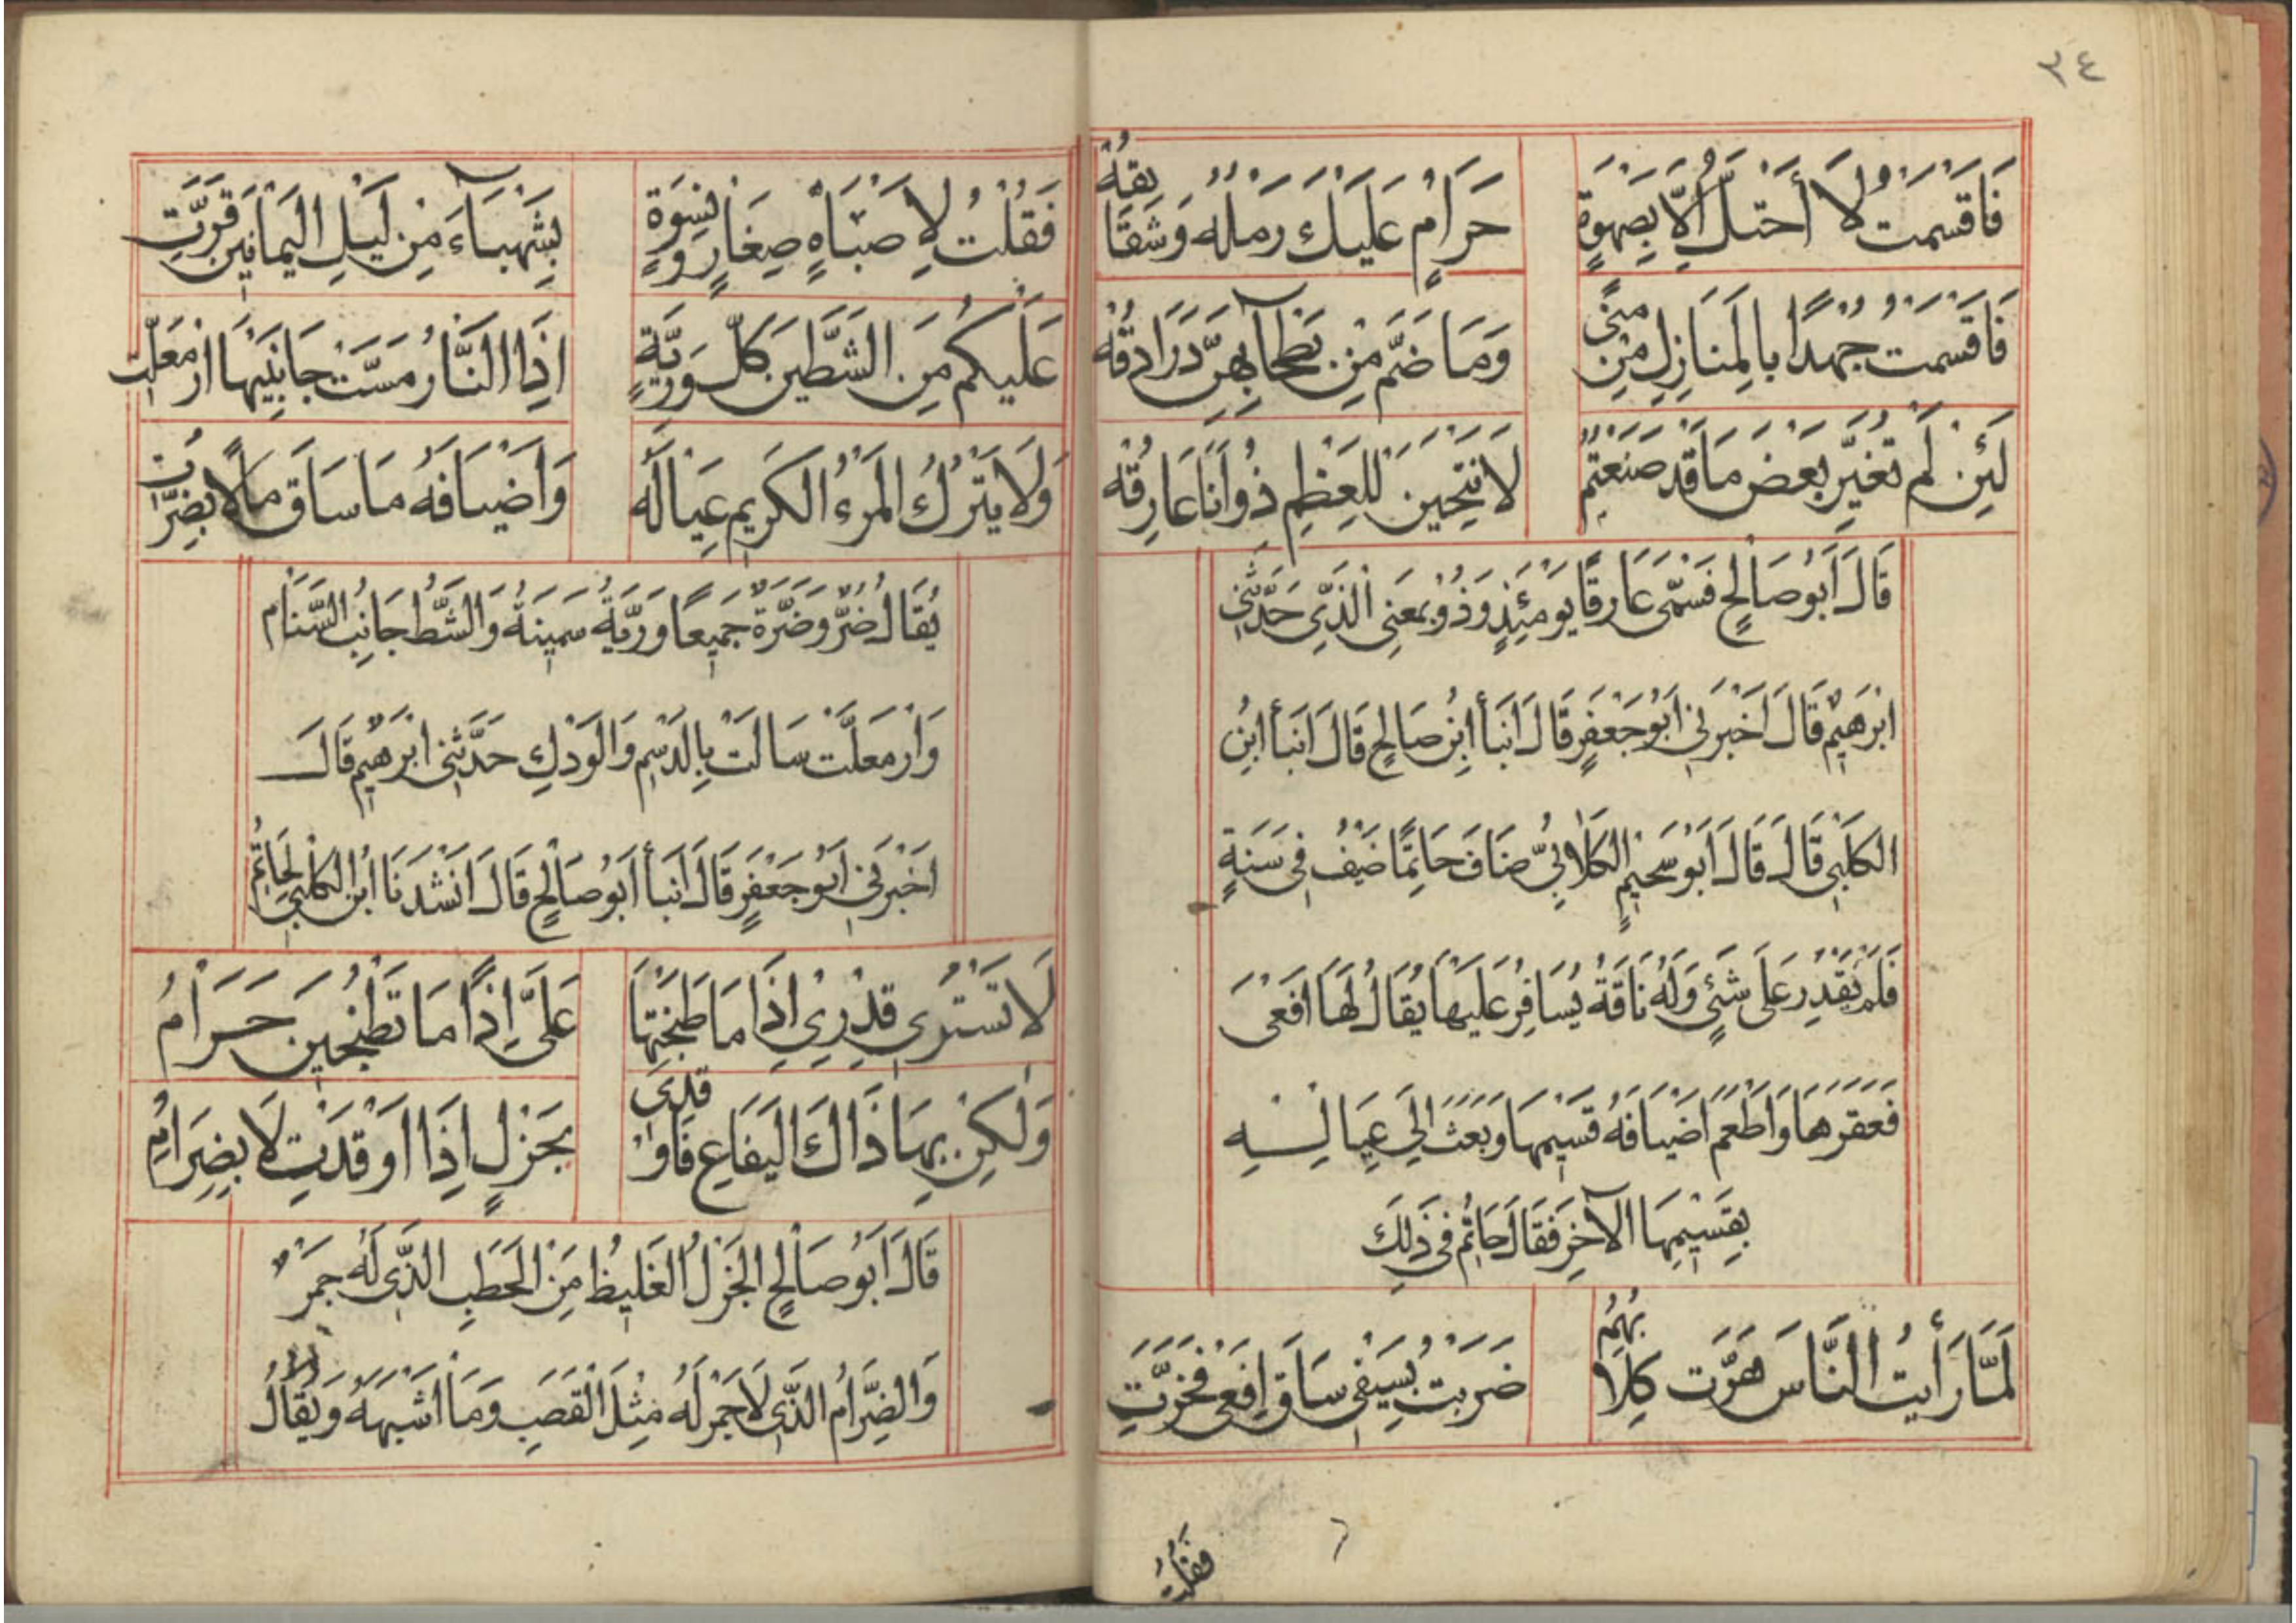 ٣٤
فَاَقْسَمْتُ لَا أَحْتَلُّ اِلَّا بِصَهْوَةٍ حَرَامٍ عَلَيْكَ رَمْلُهُ وَشَقَائِقُهُ
فَاَقْسَمْتُ جُهْدًا بِالْمَنَازِلِ مِنْ مِنًى وَمَا ضَمَّ مِنْ بَطْحَآئِهِنَّ دَرَادِقُهُ
لَئِنْ لَمْ تُغَيِّرْ بَعْضَ مَا قَدْ صَنَعْتُمْ لَانْتَحِيَنْ لِلْعَظْمِ ذُو اَنَا عَارِقُهُ
قَالَ اَبُو صَالِحٍ فَسُمِّيَ عَارِقًا يَوْمَئِذٍ وَذُوْ بِمَعْنِى الَّذِى حَدَّثَنِى
اِبْرَهِيْمُ قَالَ اَخْبَرَنِى اَبُوْ جَعْفَرٍ قَالَ اَنْبَأَ ابْنُ صَالِحٍ قَالَ اَنْبَأَ ابْنُ
الكَلْبِى قَالَ قَالَ اَبُوْ سُحَيْمٍ الكَلَابِىُّ ضَافَ حَاتِمًا ضَيْفُ فِى سَنَةٍ
فَلَمْ يَقْدِرْ عَلَى شَئٍ وَلَهُ نَاقَةُ يُسَافِرُ عَلَيْهَا يُقَالُ لَهَا اَفْعَى
فَعَقَرَهَا وَاَطْعَمَ اَضْيَافَهُ قَسِيْمَهَا وَبَعَثَ اِلَى عِيَالِهِ
بِقَسِيْمِهَا الْآخَرِ فَقَالَ حَاتِمُ فِى ذَلِكَ
لَمَّا رَأَيْتُ النَّاسَ هَرَّتْ كِلَابُهُمُ ضَرَبْتُ بِسَيْفِى سَاقَ اَفْعَى فَخَرَّتِ
فَقُلْتُ
فَقُلْتُ لِاَصْبَاهٍ صِغَارٍ وَنِسْوَةٍ بِشَهْبَآءَ مِنْ لَيْلِ الْيَمَانِينَ قَرَّتِ
عَلَيْكُمْ مِنَ الشَّطَّيْنِ كُلَّ وَرِيَّةٍ اِذَا النَّارُ مَسَّتْ جَانِبَيْهَا ارْمَعَلَّتِ
وَلَا يَتْرُكُ الْمَرْءُ الكَرِيْمُ عِيَالَهُ وَاَضْيَافَهُ مَا سَاقَ مَالًا بِضَرَّتِ
يُقَالُ ضُرٌّ وَضَرَّةٌ جَمِيْعًا وَرِيَّةُ سَمِيْنَةُ وَالشَّطُّ جَانِبُ السَّنَامِ
وَارْمَعَلَّتْ سَالَتْ بِالدَّسْمِ وَالوَدْكِ حَدَّثَنِى اِبْرَهِيْمُ قَالَ
اَخْبَرَنِى اَبُوْ جَعْفَرٍ قَالَ اَنْبَأَ اَبُو صَالِحٍ قَالَ اَنْشَدَنَا ابْنُ الكَلْبِى لِحَاتِمُ
لَا تَسْتُرِى قِدْرِى اِذَا مَا طَبَخْتِهَا عَلَىَّ اِذًا مَا تَطْبُخِيْنَ حَرَامُ
وَلٰكِنْ بِهَا ذَاكَ الْيَفَاعِ فَاَوْقِدِى بِجَزْلٍ اِذَا اَوْقَدْتِ لَا بِضِرَامِ
قَالَ اَبُوْ صَالِحٍ الجَزْلُ الغَلِيْظُ مِنَ الْحَطَبِ الَّذِى لَهُ جَمْرٌ
وَالضِّرَامُ الَّذِى لَا جَمْرَ لَهُ مِثْلَ الْقَصَبِ وَمَا اَشْبَهَهُ وَيُقَالُ